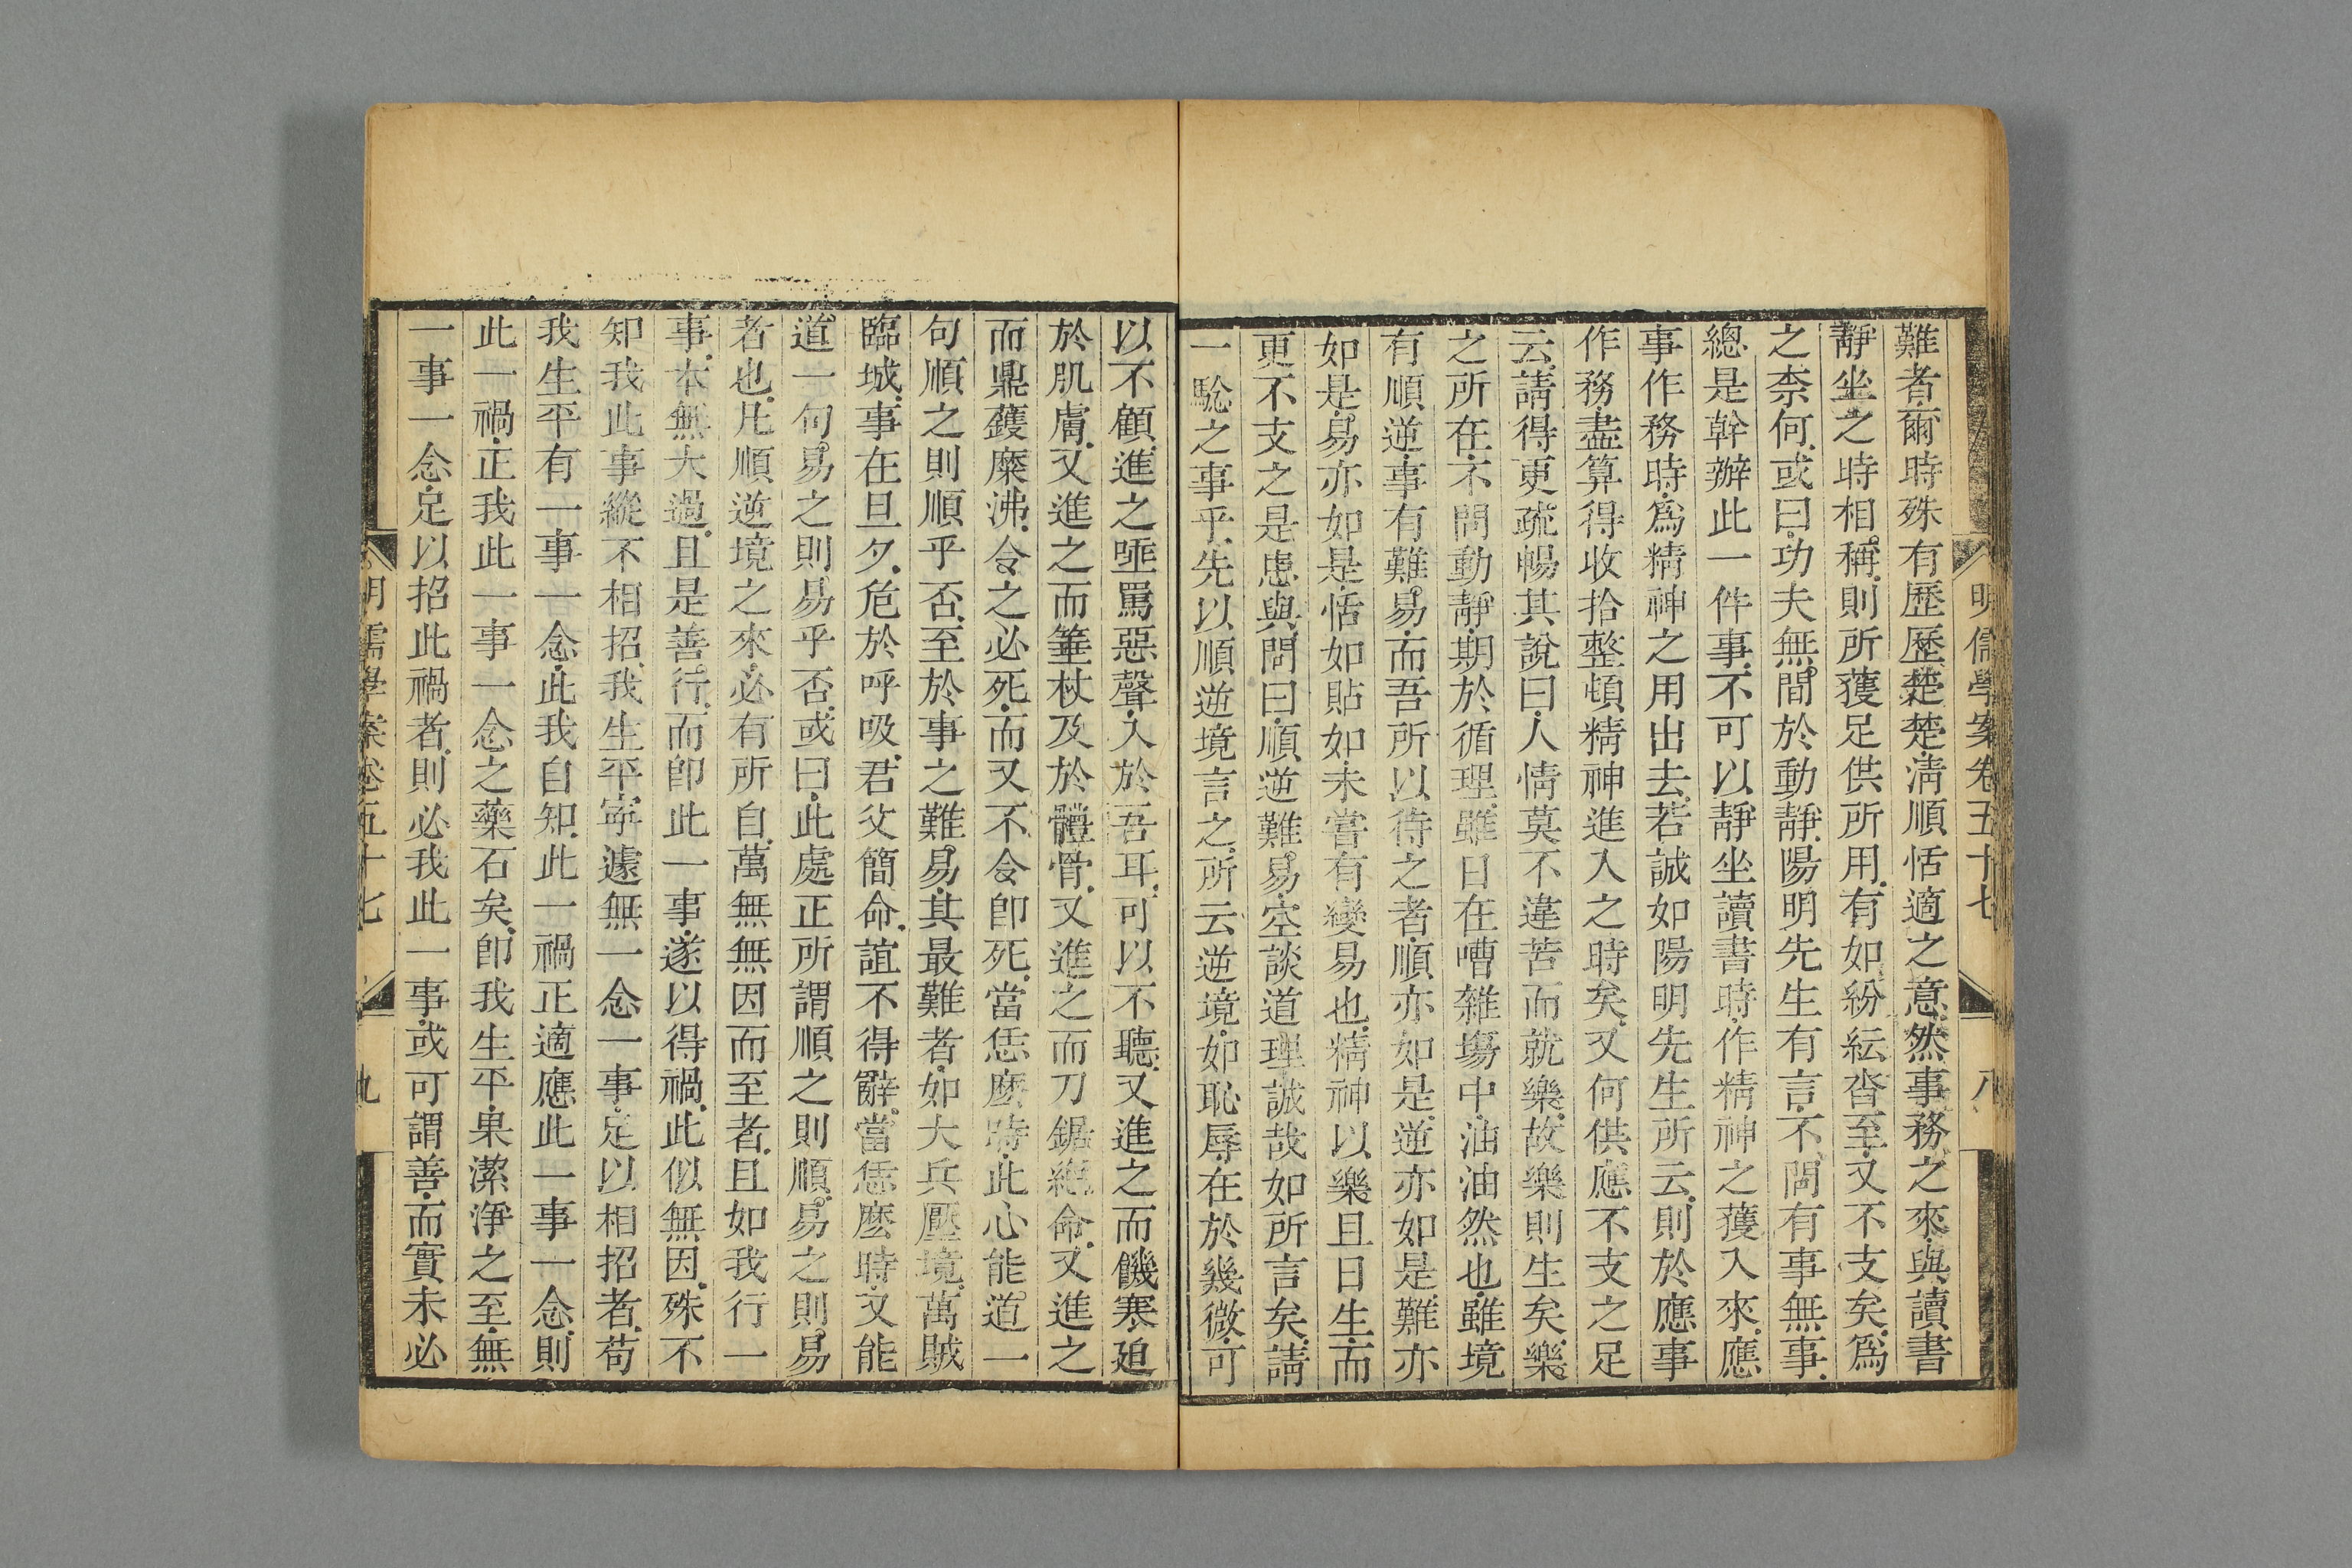 明儒學案卷五十七
八
難者爾時殊有歷歷楚楚淸順恬適之意然事務之來與讀書
靜坐之時相稱則所獲足供所用有如紛紜沓至又不支矣爲
之柰何或曰功夫無間於動靜陽明先生有言不問有事無事
總是幹辦此一件事不可以靜坐讀書時作精神之獲入來應
事作務時爲精神之用出去若誠如陽明先生所云則於應事
作務盡算得收拾整頓精神進入之時矣又何供應不支之足
云請得更疏暢其說曰人情莫不違苦而就樂故樂則生矣樂
之所在不問動靜期於循理雖日在嘈雜塲中油油然也雖境
有順逆事有難易而吾所以待之者順亦如是逆亦如是難亦
如是易亦如是恬如貼如未嘗有變易也精神以樂且日生而
更不支之是患與問曰順逆難易空談道理誠哉如所言矣請
一騐之事乎先以順逆境言之所云逆境如恥辱在於幾微可
以不顧進之唾罵惡聲入於吾耳可以不聽又進之而饑寒廹
於肌膚又進之而箠杖及於體骨又進之而刀鋸絕命又進之
而鼎鑊糜沸令之必死而又不令卽死當恁麽時此心能道一
句順之則順乎否至於事之難易其最難者如大兵壓境萬賊
臨城事在旦夕危於呼吸君父簡命誼不得辭當恁麽時又能
道一句易之則易乎否或曰此處正所謂順之則順易之則易
者也凡順逆境之來必有所自萬無無因而至者且如我行一
事本無大過且是善行而卽此一事遂以得禍此似無因殊不
知我此事縱不相招我生平寧遽無一念一事足以相招者苟
我生平有一事一念此我自知此一禍正適應此一事一念則
此一禍正我此一事一念之藥石矣卽我生平果潔淨之至無
一事一念足以招此禍者則必我此一事或可謂善而實未必
明儒學案卷五十七
九